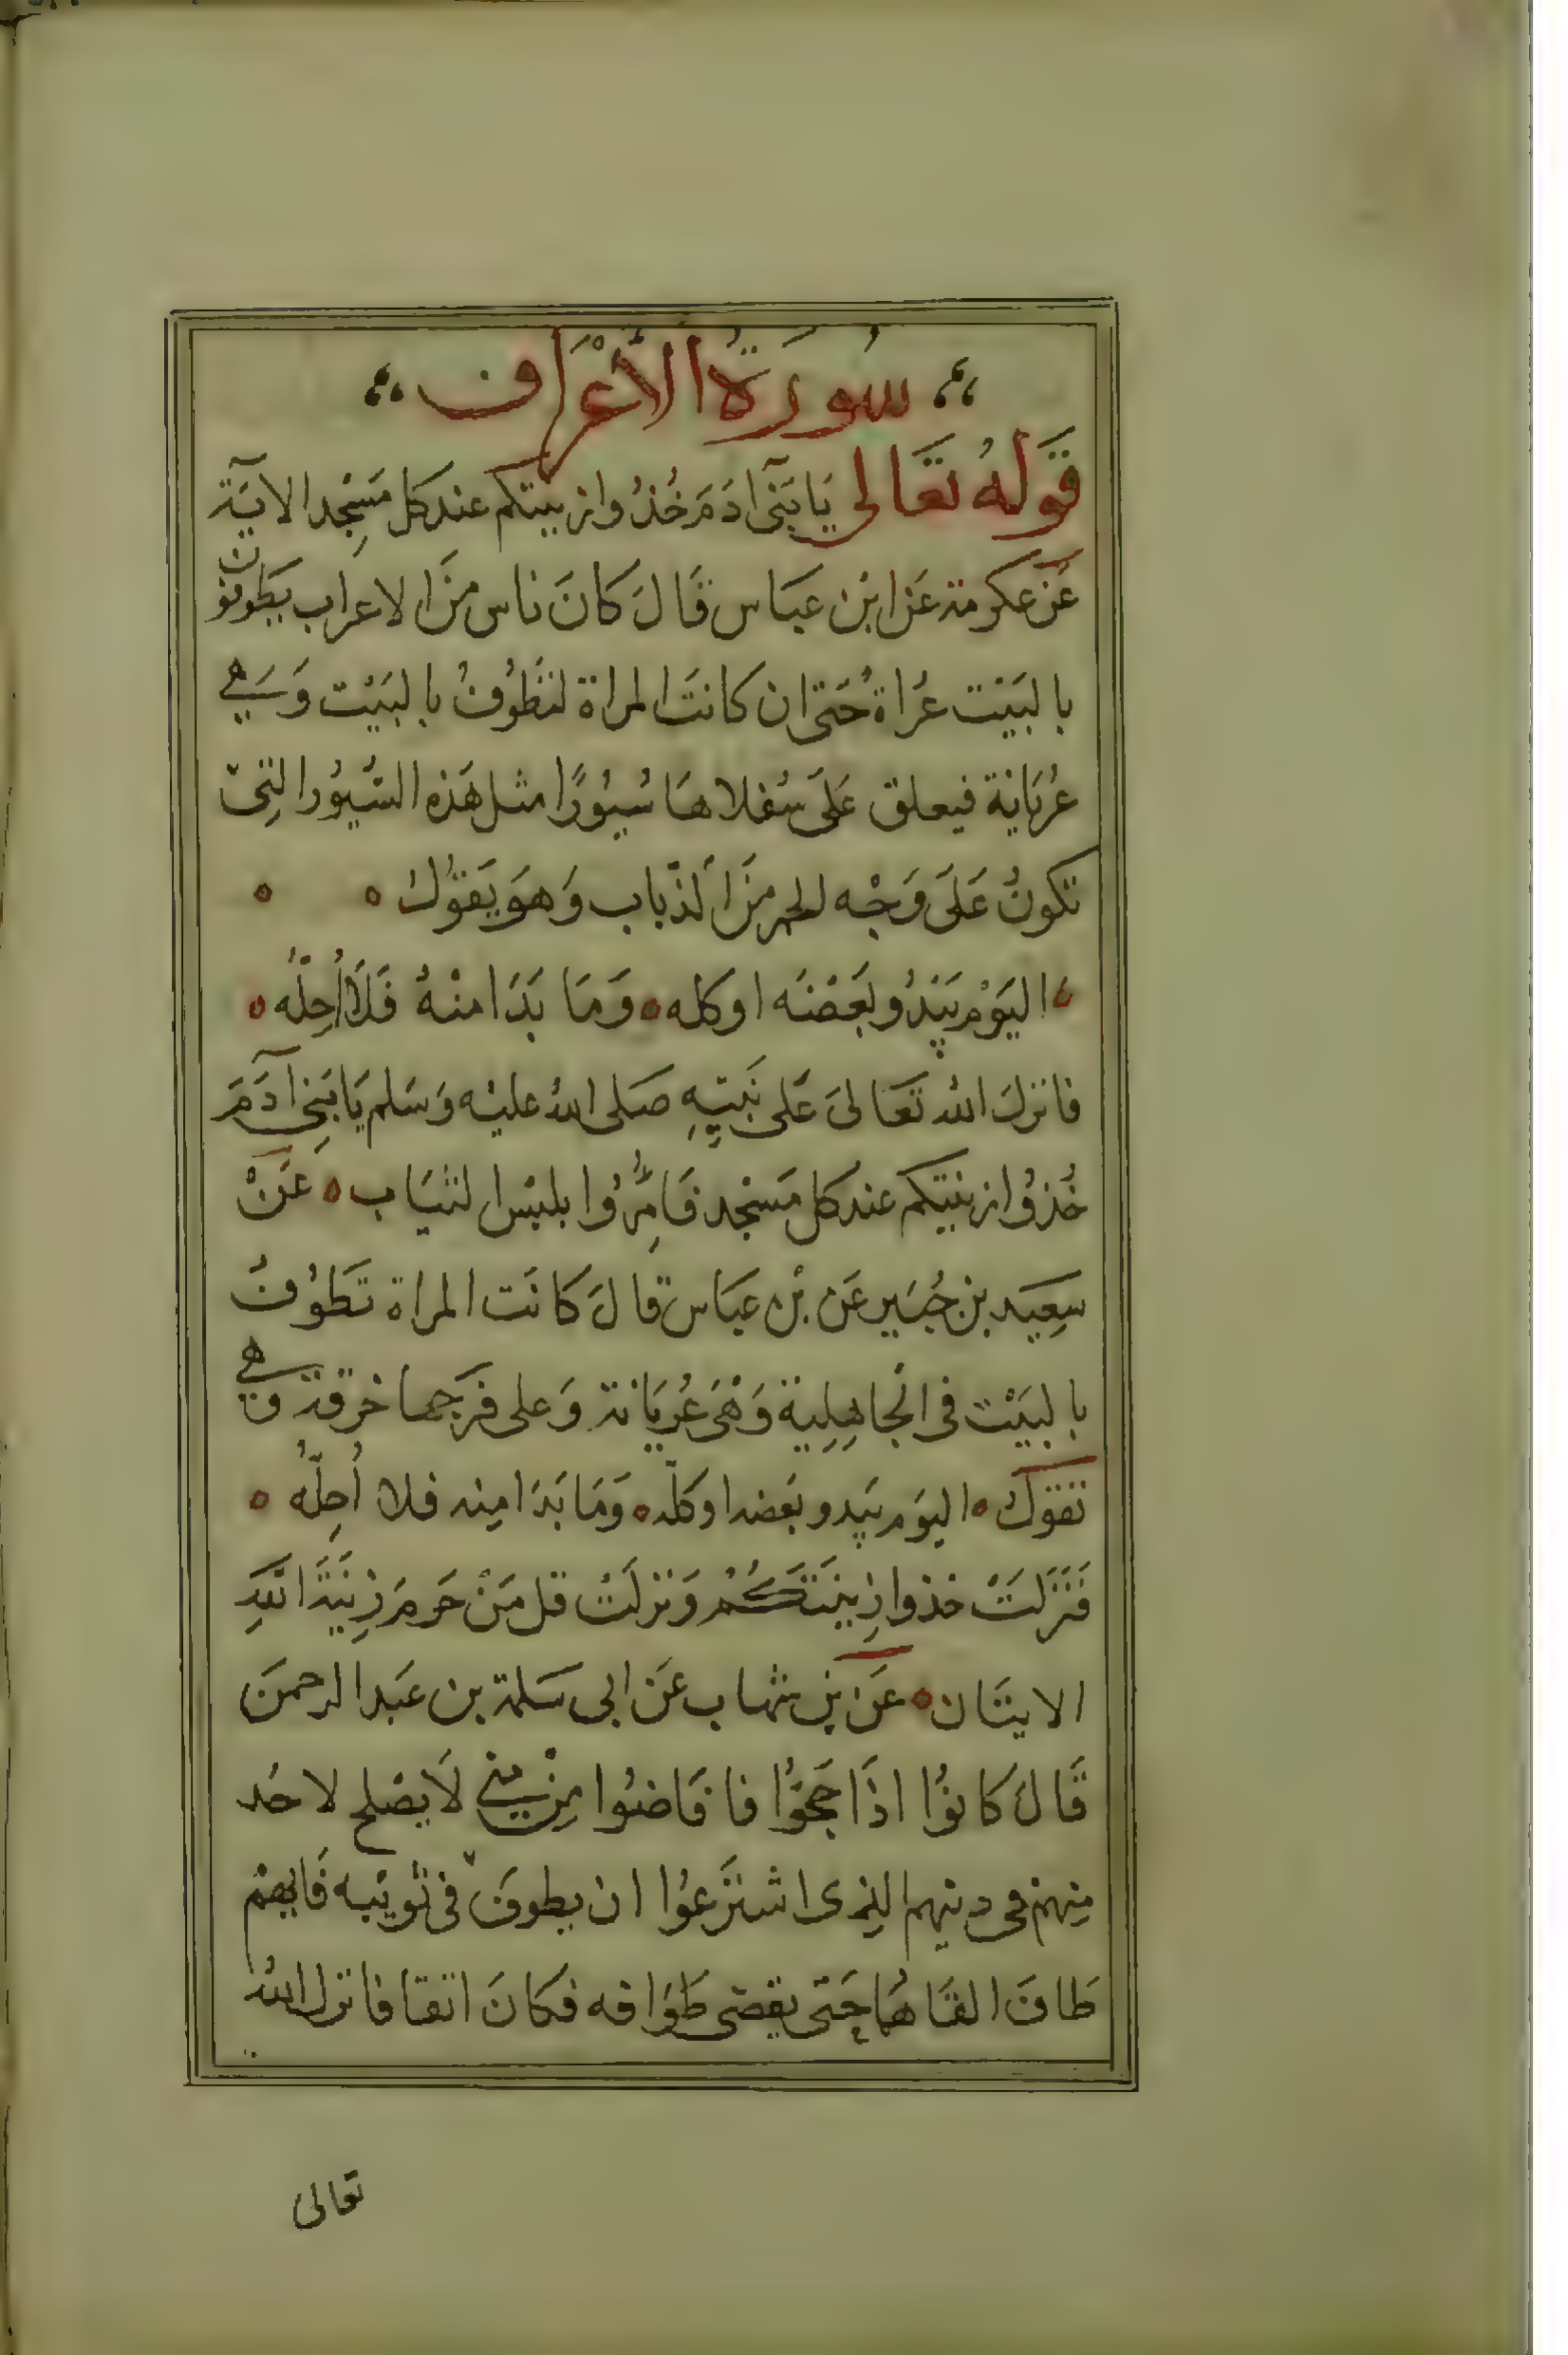 سُورَةُ الأَعْرَاف
قَولهُ تَعَالى يَا بَنىِ آدَمَ خُذُوا زينتكم عند كل مَسْجِد الايَة
عَن عكرمة عَن ابْن عبَاس قَالَ كَانَ ناس منَ الاعراب يطَوفون
بالبَيْت عُراة حَتى ان كانَت المراة لتطُوفُ بالبَيْت وَهي
عُريَانة فيعلق عَلَى سُفلاهَا سُيُورًا مثل هَذه السُّيُور التِى
تكونُ عَلَى وَجْه الحمر منَ الذّبَاب وَهوَ يَقوُل
اليَوْمرَ يَبْدُو بَعَضَه او كله وَمَا بَدَا منْهُ فَلَا أُحِلّهُ
فانزلَ الله تَعَالىَ عَلى نَبيّهِ صَلى اللهُ عليْه وَسَلم يَا بَنىِ آدَمَ
خُذوُا زينتكم عند كل مَسْجد فَامِرُوا بلبْس الثيَاب عَنْ
سَعِيد بن جُبَير عَن بْن عبَاس قالَ كانَت المراة تَطوُفُ
بالبَيْت فى الجاهِلِية وَهْىَ عُريَانة وَعلى فرَجها خرقة وهي
تقول اليوَمر يَبدو بَعضه او كله وَمَا بَدَا مِنه فلا أُحِلّهُ
فَنَزَلَتْ خذوا زِينَتَكُمْ وَنزلَتْ قل مَنْ حَرمَ زِينَةَ اللَّهِ
الايتَان عَن بْن شهاب عَن ابى سَلمة بن عَبد الرحمنَ
قَالَ كَانوُا اذَا حَجّوُا فافَاضُوا مِنْ مِنى لَا يَصْلح لاحَد
مِنهمْ فى دينهم الذِى اشترَعوُا ان يطوفَ فى ثوبَيْه فَايهمْ
طَافَ القَاهُمَا حَتى يقضى طَوَافه فكانَ اتقا فانزل اللهُ
تعالى